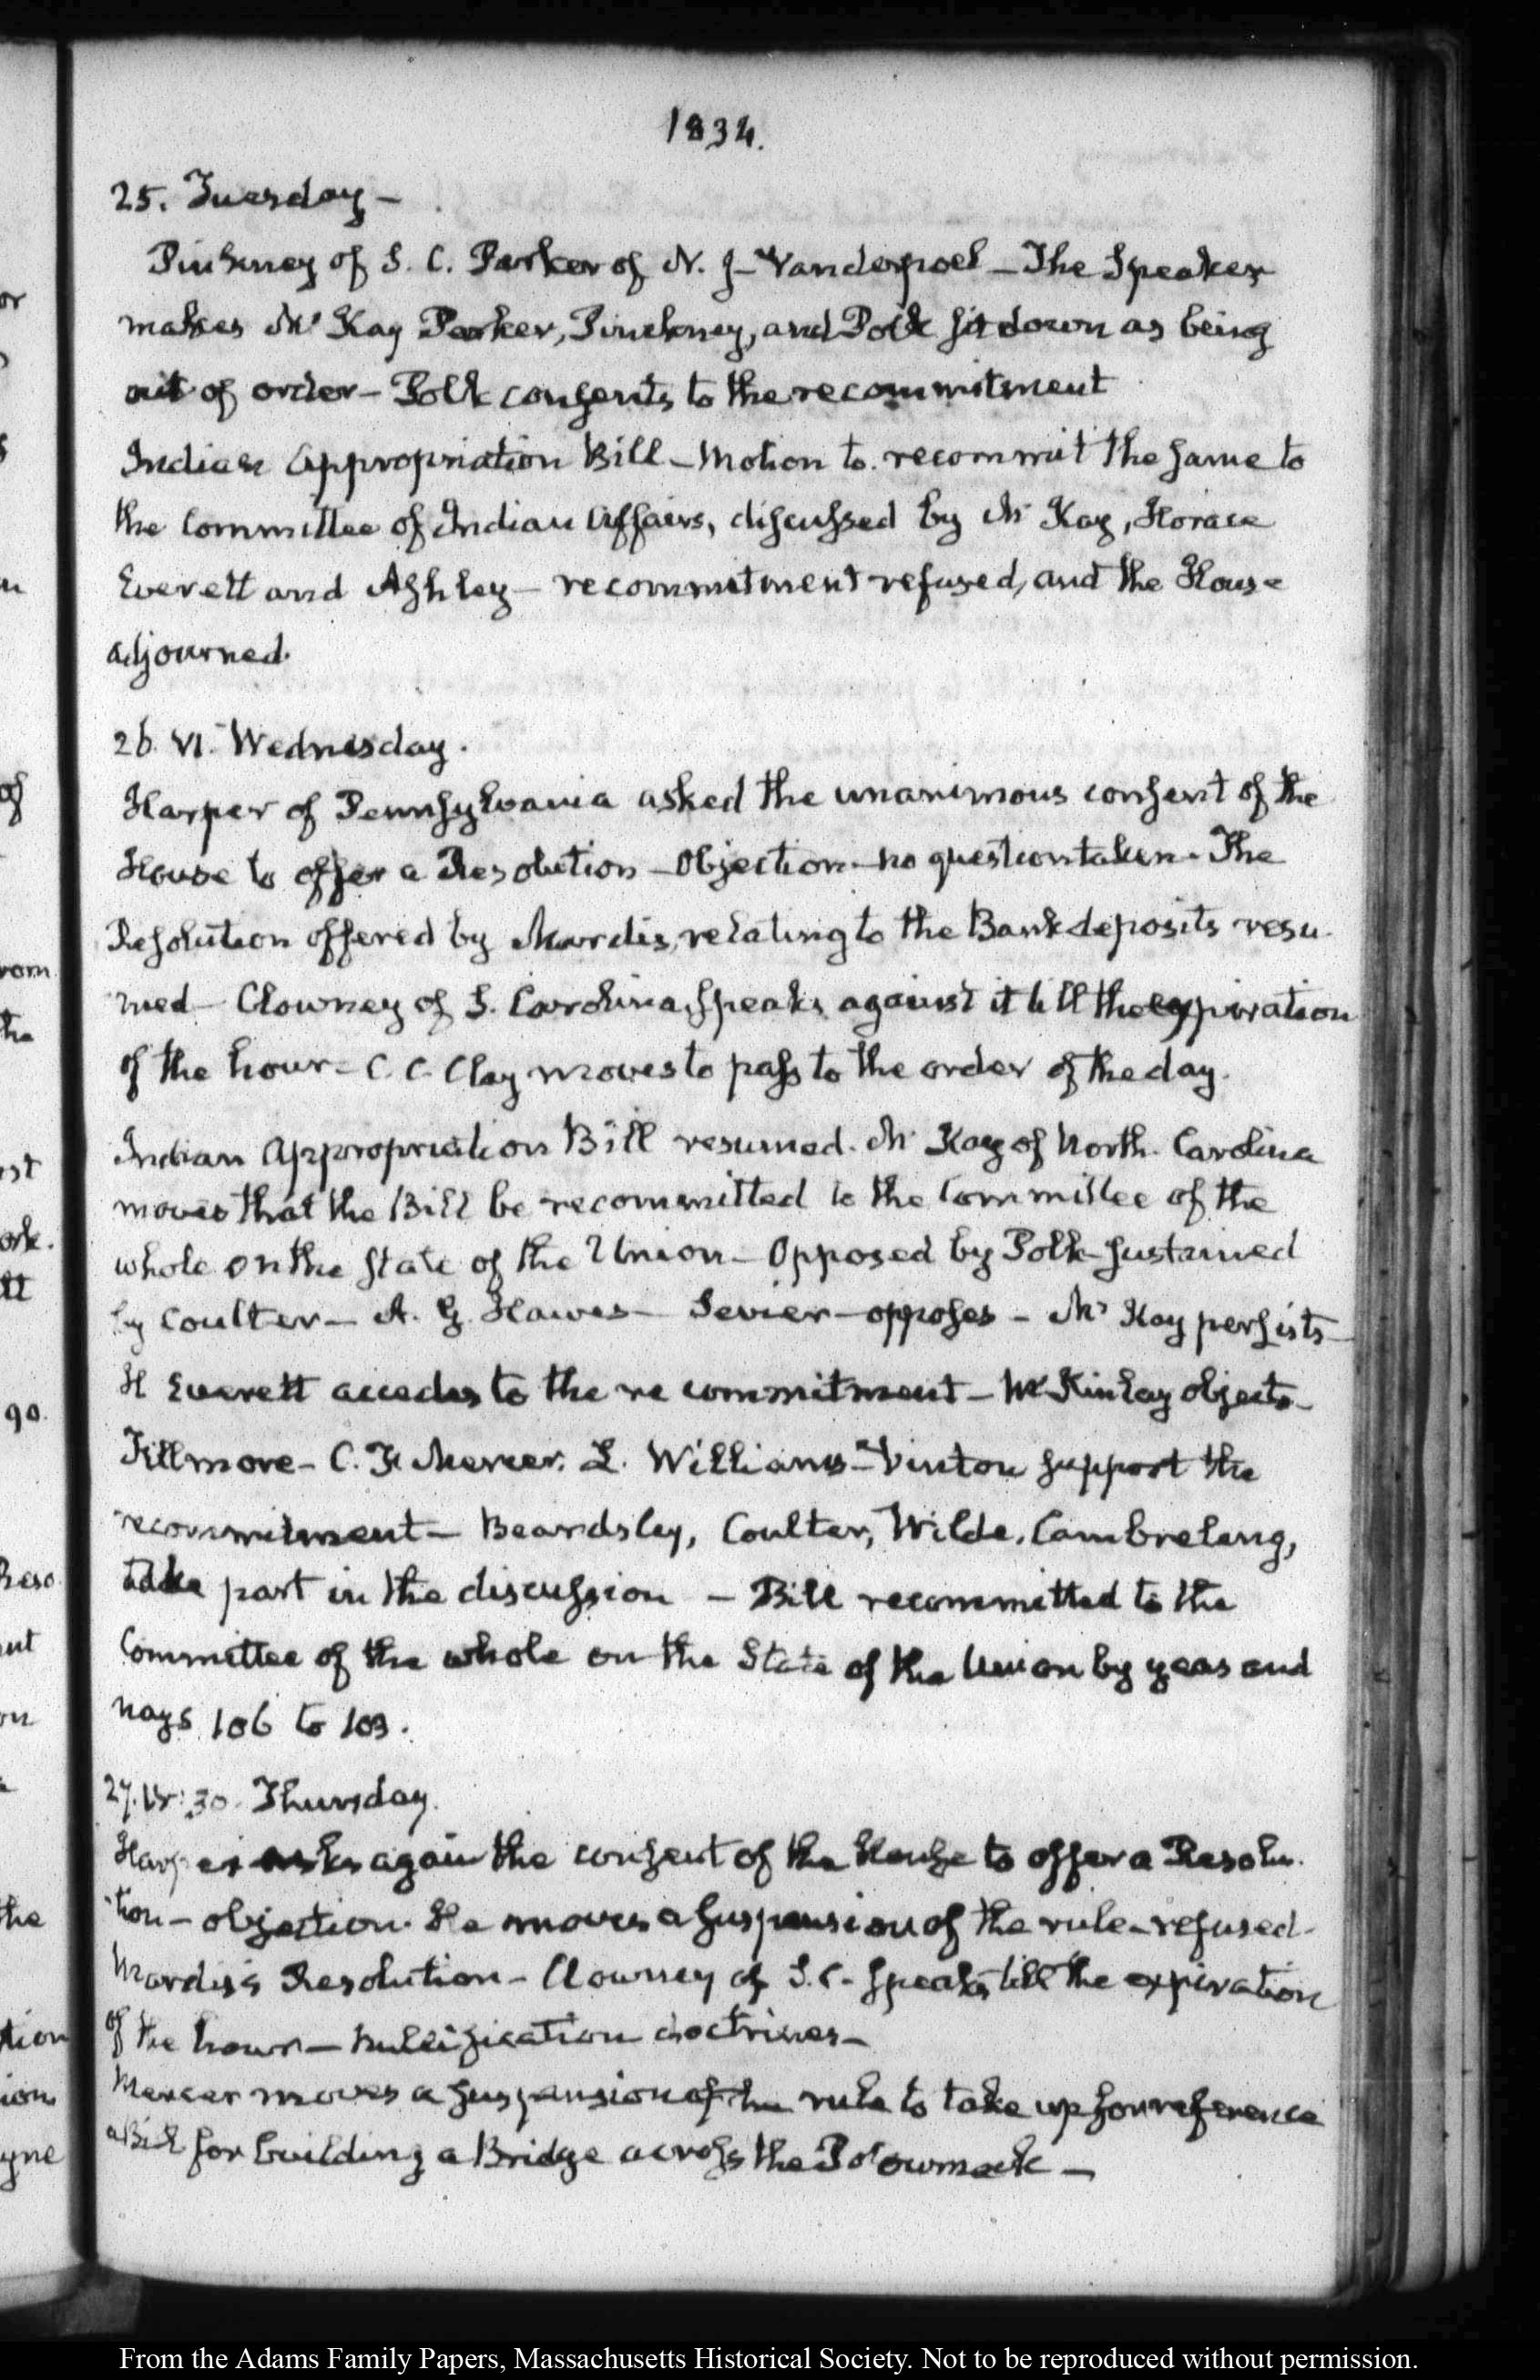 1834.
25. Tuesday –
Pinkney of S. C. Parker of N. J – Vanderpoel – The Speaker
makes Mc Kay Parker, Pinckney, and Polk sit down as being
out of order – Polk consents to the recommitment
Indian Appropriation Bill – Motion to recommit the same to
the Committee of Indian Affairs, discussed by Mc Kay, Horace
Everett and Ashley – recommitment refused, and the House
adjourned.
26. VI. Wednesday.
Harper of Pennsylvania asked the unanimous consent of the
House to offer a Resolution – Objection – no question taken – The
Resolution offered by Mardis, relating to the Bank deposits resu-
med – Clowney of S. Carolina, speaks against it till the expiration
of the hour – C. C. Clay moves to pass to the order of the day.
Indian Appropriation Bill resumed. Mc Kay of North Carolina
moves that the Bill be recommitted to the Committee of the
whole on the State of the Union – Opposed by Polk – sustained
by Coulter – A. G. Hawes – Sevier – opposes – Mc Kay persists –
H Everett accedes to the re commitment – McKinlay objects –
Fillmore – C. F. Mercer. L. Williams – Vinton support the
recommitment – Beardsley, Coulter, Wilde, Cambreleng,
take part in the discussion – Bill recommitted to the
Committee of the whole on the State of the Union by yeas and
nays 106 to 103.
27. 30. Thursday.
Harper asks again the consent of the House to offer a Resolu-
tion – objection. He moves a suspension of the rule – refused –
Mardis's Resolution – Clowney of S. C. speaks till the expiration
of the hour – nullification doctrines –
Mercer moves a suspension of the rule to take up for reference
a Bill for building a Bridge across the Potowmack –
or
of
rom
the
st
ork.
tt
90.
Reso
out
on
the
tion
ion
yne
From the Adams Family Papers, Massachusetts Historical Society. Not to be reproduced without permission.